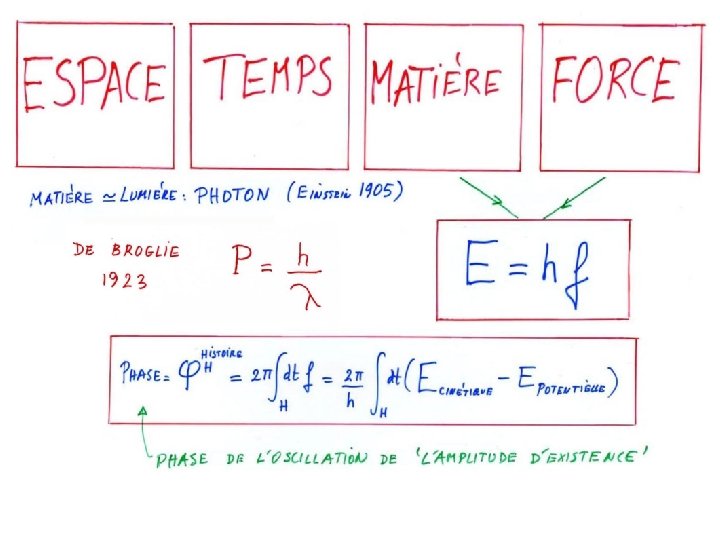 ESPACE TEMPS MATIÉRE FORCE
MATIÉRE ≃ LUMIÉRE : PHOTON (EINSTEIN 1905)
DE BROGLIE
1923
P = h/λ
E = hf
PHASE = φ_H^HISTOIRE = 2π ∫_H dt f = 2π/h ∫_H dt (E_CINÉTIQUE − E_POTENTIELLE)
PHASE DE L'OSCILLATION DE 'L'AMPLITUDE D'EXISTENCE'